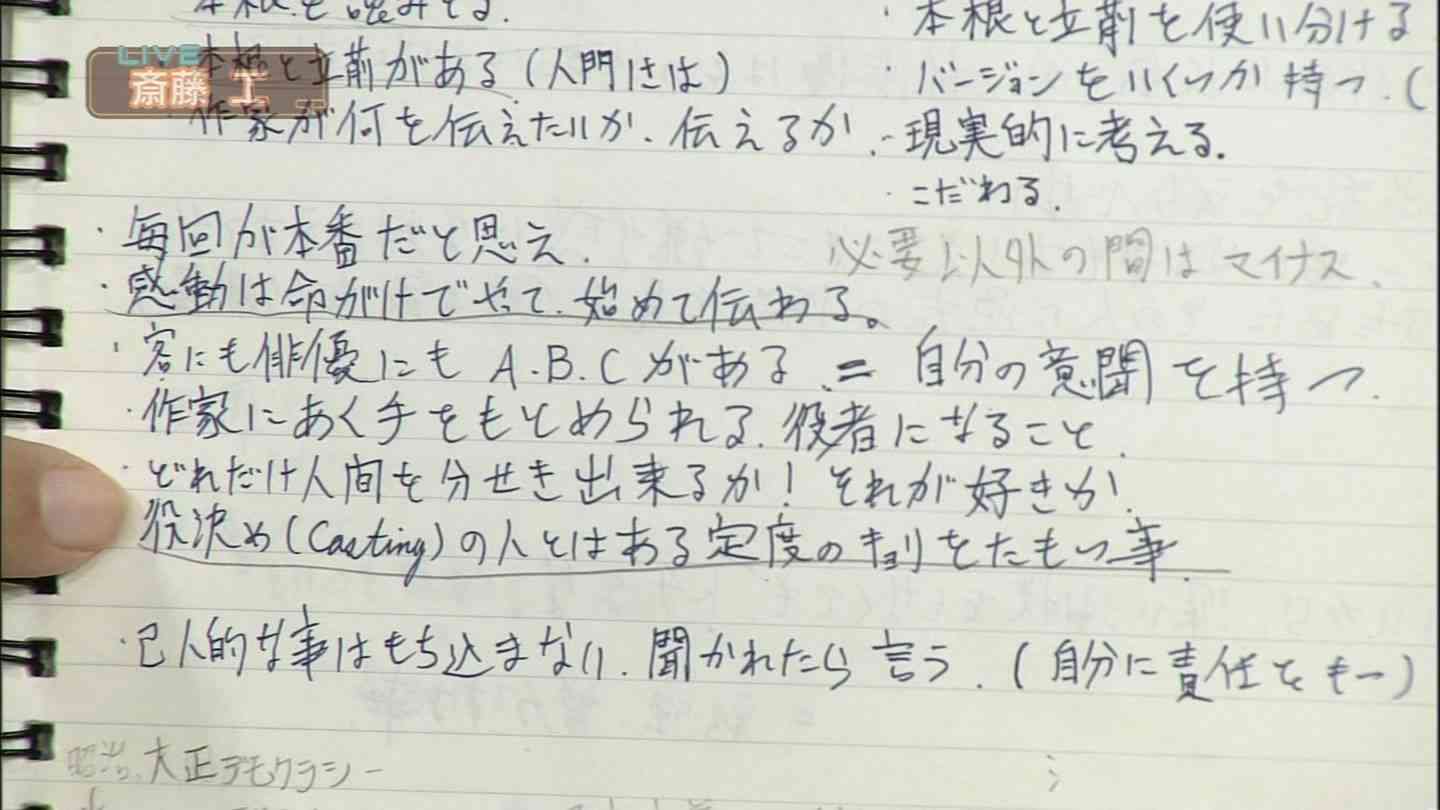 本根を読みとる.
・本根と立前を使い分ける
LIVE
斎藤 工
本根と立前がある(人門には)
・バージョンをいくつか持つ.(
作家が何を伝えたいか.伝えるか.
・現実的に考える.
・こだわる.
・毎回が本番だと思え.
必要以外の間はマイナス.
・感動は命がけでやって.始めて伝わる。
・客にも俳優にもA.B.Cがある.=自分の意聞を持つ.
・作家にあく手をもとめられる.役者になること.
・どれだけ人間を分せき出来るか!それが好きか!
役決め(Casting)の人とはある定度のキョリをたもつ事.
・己人的な事はもち込まない.聞かれたら言う.(自分に責任をもつ)
昭治.大正デモクラシー